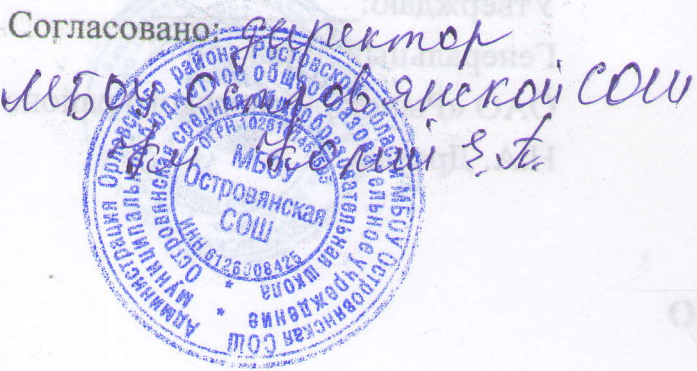 Согласовано: директор
МБОУ Островянской СОШ
Администрация Орловского района Ростовской области МБОУ Островянская СОШ
муниципальное бюджетное общеобразовательное учреждение
Островянская средняя общеобразовательная школа
ИНН 6126008425
МБОУ
Островянская
СОШ